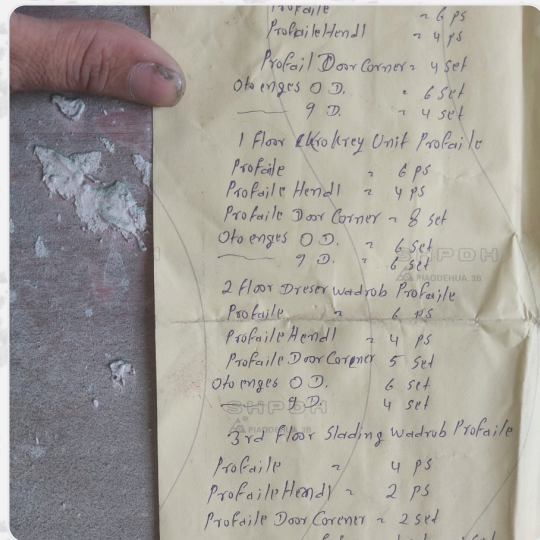 Profaile = 6 ps
ProfaileHendl = 4 ps
Profail Door Corner = 4 set
Oto enges O D. = 6 set
9 D. = 4 set
1 Floor Krokrey Unit Profaile
Profaile = 6 ps
Profaile Hendl = 4 ps
Profaile Door Corner = 8 set
Oto enges O D. = 6 set
9 D. = 6 set
SHPDH
PIAODEHUA.38
2 Floor Dreser wadrob Profaile
Profaile = 6 ps
Profaile Hendl = 4 ps
Profaile Door Coroner 5 set
Oto enges O D. 6 set
9 D. 4 set
SHPDH
PIAODEHUA.38
3rd Floor Slading wadrob Profaile
Profaile = 4 ps
Profaile Hendl = 2 ps
Profaile Door Corener = 2 set